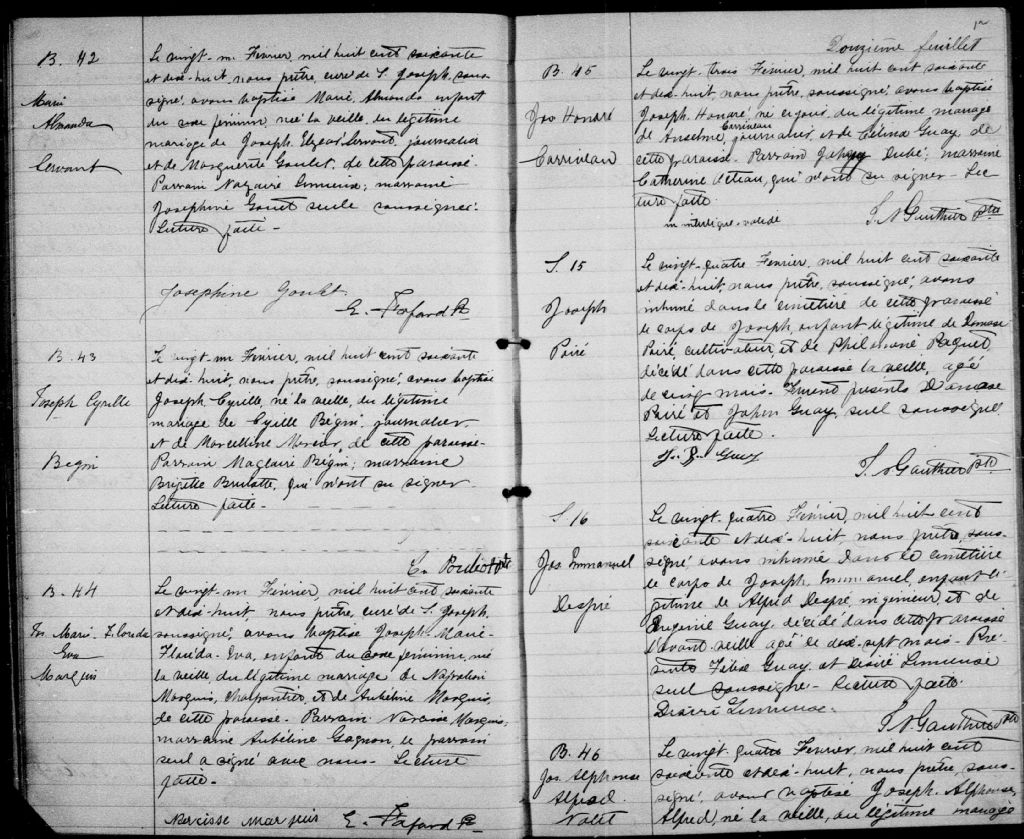 B. 42
Marie
Almanda
Servant
Le vingt-un Février, mil huit cent soixante
et dix-huit, nous prêtre, curé de S. Joseph, sous-
signé, avons baptisé Marie, Almanda, enfant
du sexe féminin née la veille, du légitime
mariage de Joseph Elzéar Servant, journalier
et de Marguerite Goulet, de cette paroisse.
Parrain Nazaire Lemieux; marraine
Josephine Goulet seule soussignée.
Lecture faite.
Josephine Goulet
E. Fafard Ptr
B. 43
Joseph Cyrille
Begin
Le vingt-un Février, mil huit cent soixante
et dix-huit, nous prêtre, soussigné, avons baptisé
Joseph Cyrille, né la veille, du légitime
mariage de Cyrille Bégin, journalier
et de Marcelline Mercier, de cette paroisse.
Parrain Maglaire Bégin; marraine
Brigitte Brulotte, qui n'ont su signer.
Lecture faite.
B. 44
Jos. Marie-Florida
Eva
Marquis
Le vingt-un Février, mil huit cent soixante
et dix-huit, nous prêtre, curé de S. Joseph,
soussigné, avons baptisé Joseph-Marie-
Florida-Eva, enfant du sexe féminin, née
la veille du légitime mariage de Napoléon
Marquis, charpentier, et de Aubéline Marquis,
de cette paroisse. Parrain Narcisse Marquis,
marraine Aubéline Gagnon, le parrain
seul a signé avec nous. Lecture
faite.
Narcisse Marquis E. Fafard Ptr
12
Douzième feuillet
B. 45
Jos Honoré
Carrineau
Le vingt-trois Février, mil huit cent soixante
et dix-huit, nous prêtre, soussigné, avons baptisé
Joseph Honoré, né du légitime mariage
Carrineau
de Anselme, journalier et de Célina Guay, de
cette paroisse. Parrain Dubé; marraine
Catherine, qui n'ont su signer. Lec-
ture faite.
un interligne valide
J. N Gauthier Ptre
S. 15
Joseph
Poiré
Le vingt-quatre Février, mil huit cent soixante
et dix-huit, nous prêtre, soussigné, avons
inhumé dans le cimetière de cette paroisse
le corps de Joseph, enfant légitime de Damase
Poiré, cultivateur, et de Philomène Paquet,
décédé dans cette paroisse la veille, âgé
de cinq mois. Furent présents Damase
Poiré et Guay, seul soussigné.
Lecture faite.
Guay
J. N Gauthier Ptre
S. 16
Jos. Immanuel
Despré
Le vingt-quatre Février, mil huit cent
soixante et dix-huit nous prêtre, sous-
signé avons inhumé dans le cimetière
le corps de Joseph, Immanuel, enfant lé-
gitime de Alfred Despré, ingénieur, et de
Eugénie Guay, décédé dans cette paroisse
l'avant-veille âgé de dix-sept mois. Pré-
sents Guay et Désiré Lemieux
seul soussigné. Lecture faite.
Désiré Lemieux
J. N Gauthier Ptre
B. 46
Jos. Alphonse
Alfred
Le vingt-quatre Février, mil huit cent
soixante et dix-huit, nous prêtre, sous-
signé, avons baptisé Joseph, Alphonse,
Alfred, né la veille, du légitime mariage